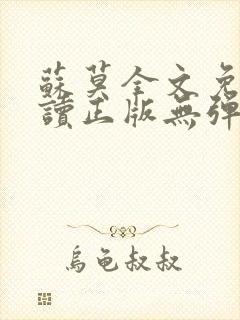 蘇莫全文免
讀正版無彈
烏龜叔叔